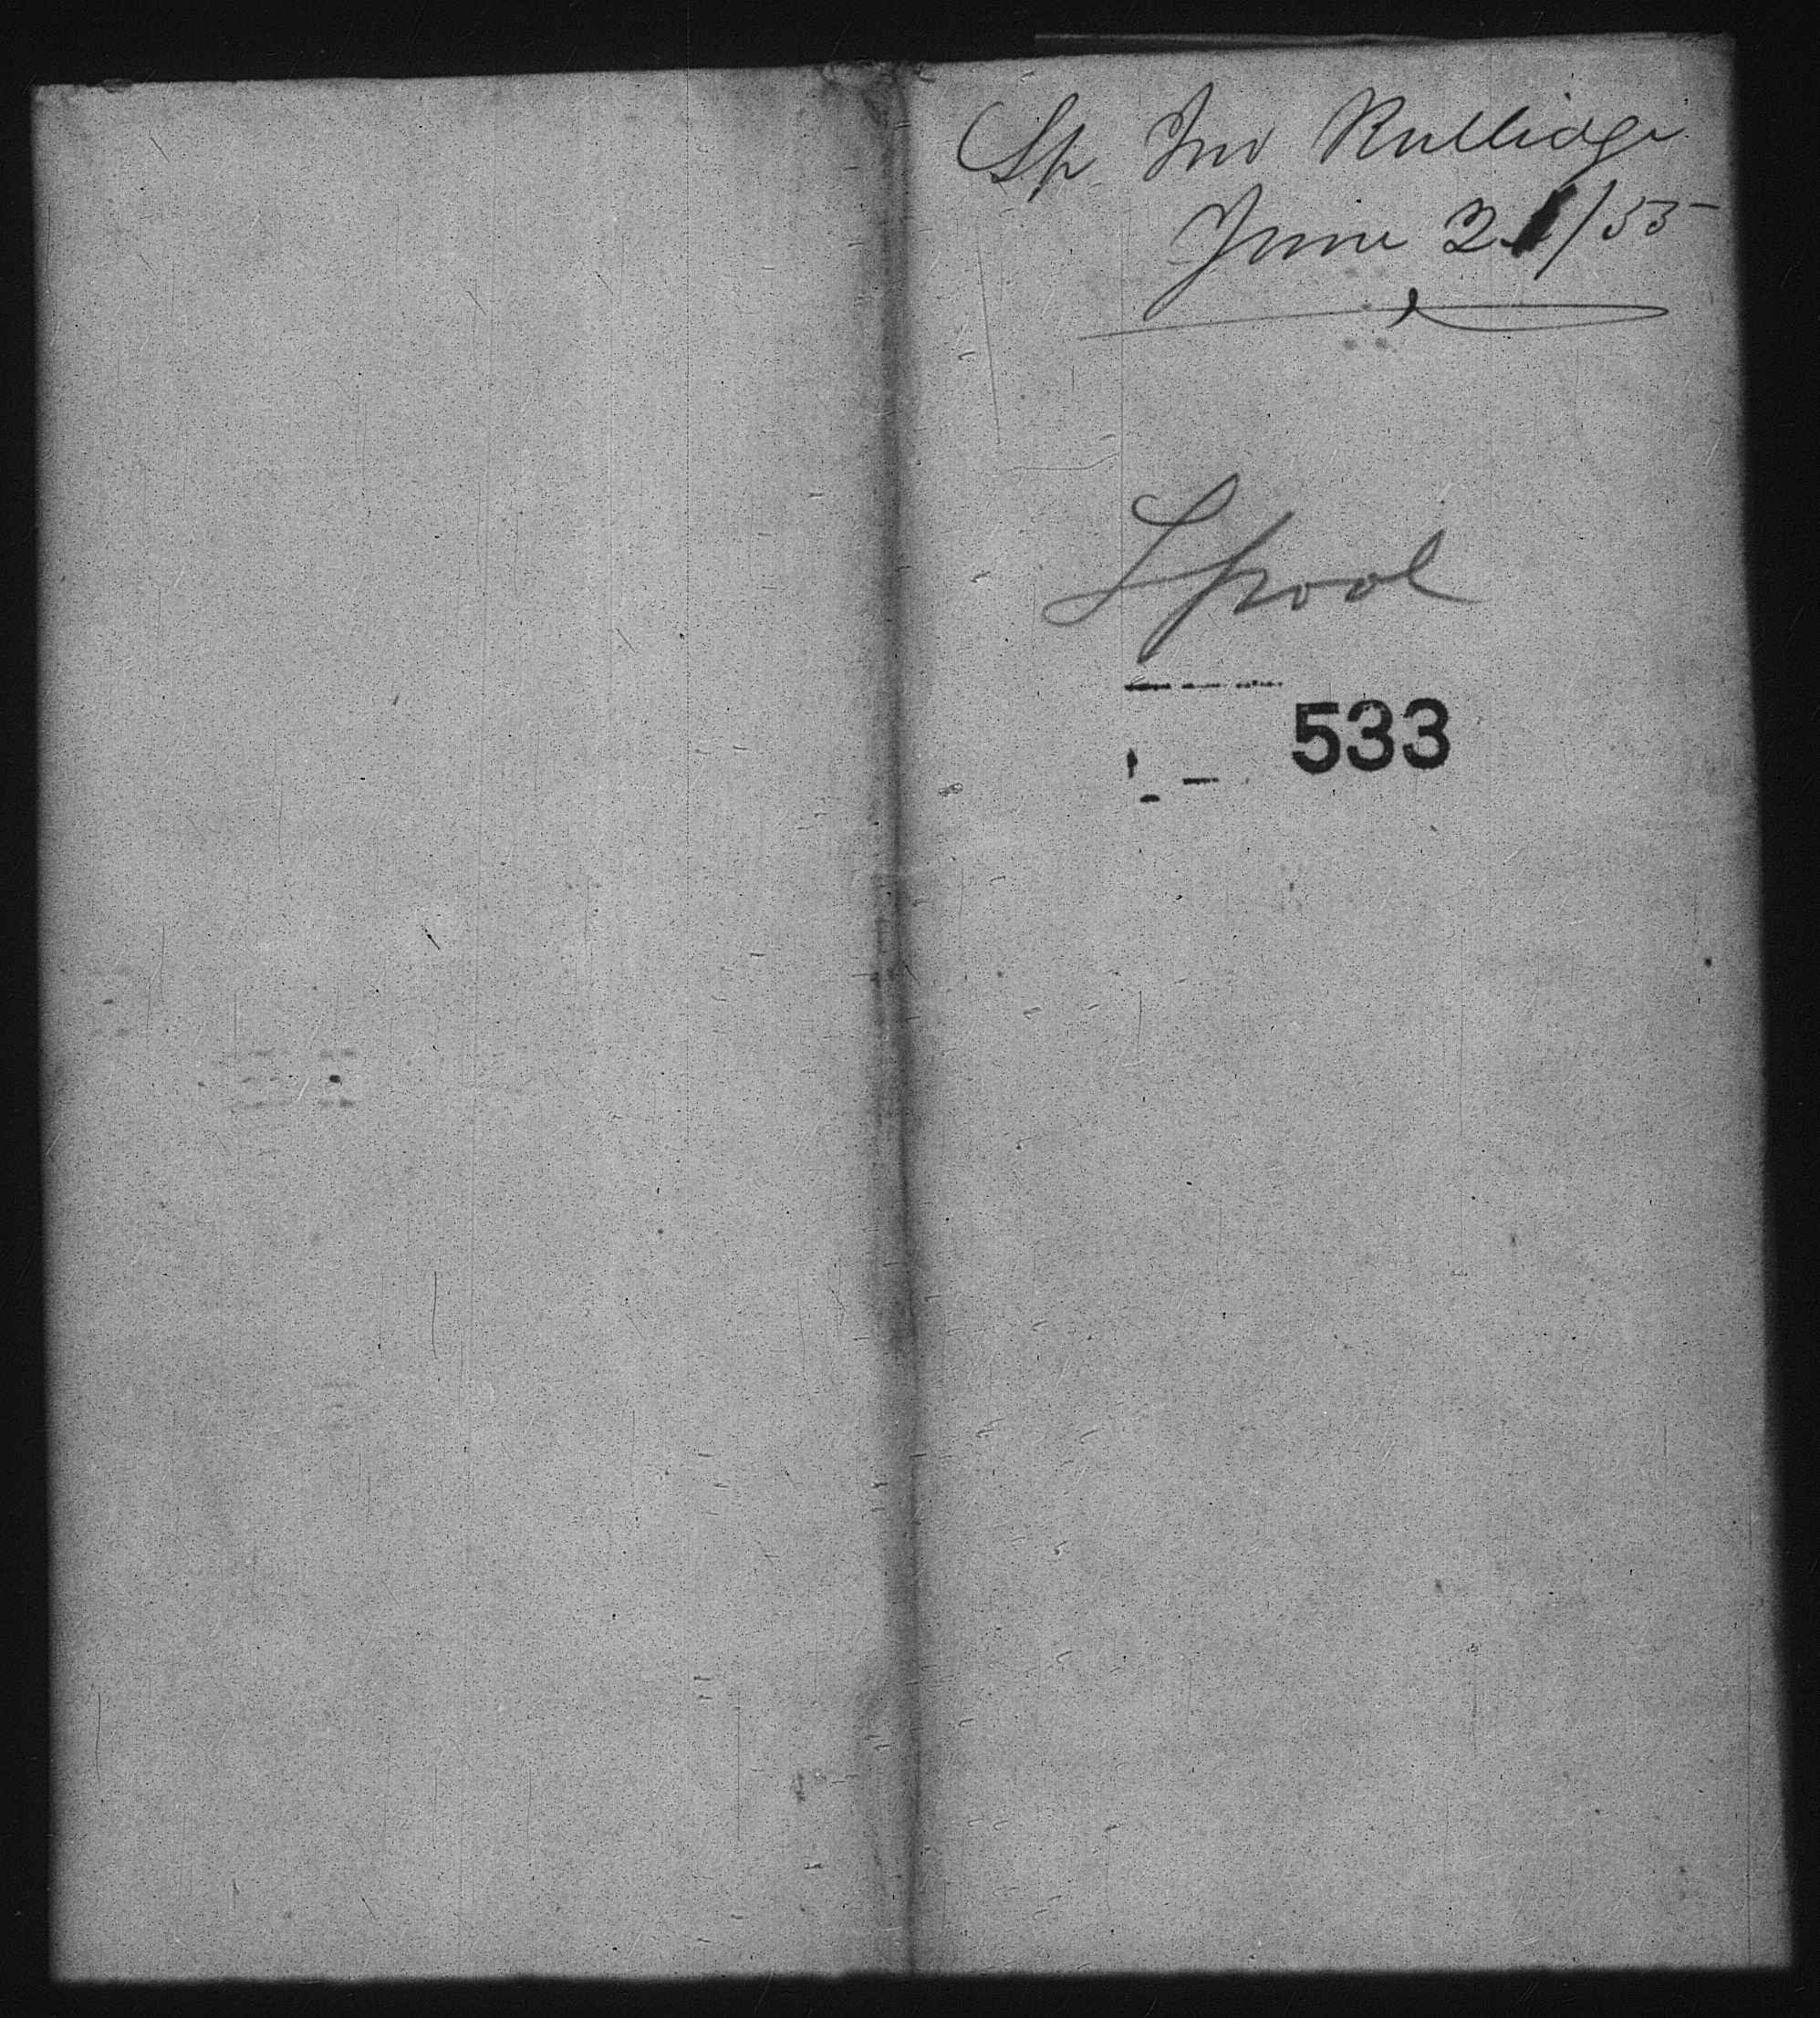 Sp Jno Rutlidge
June 21/55
Lpool
533